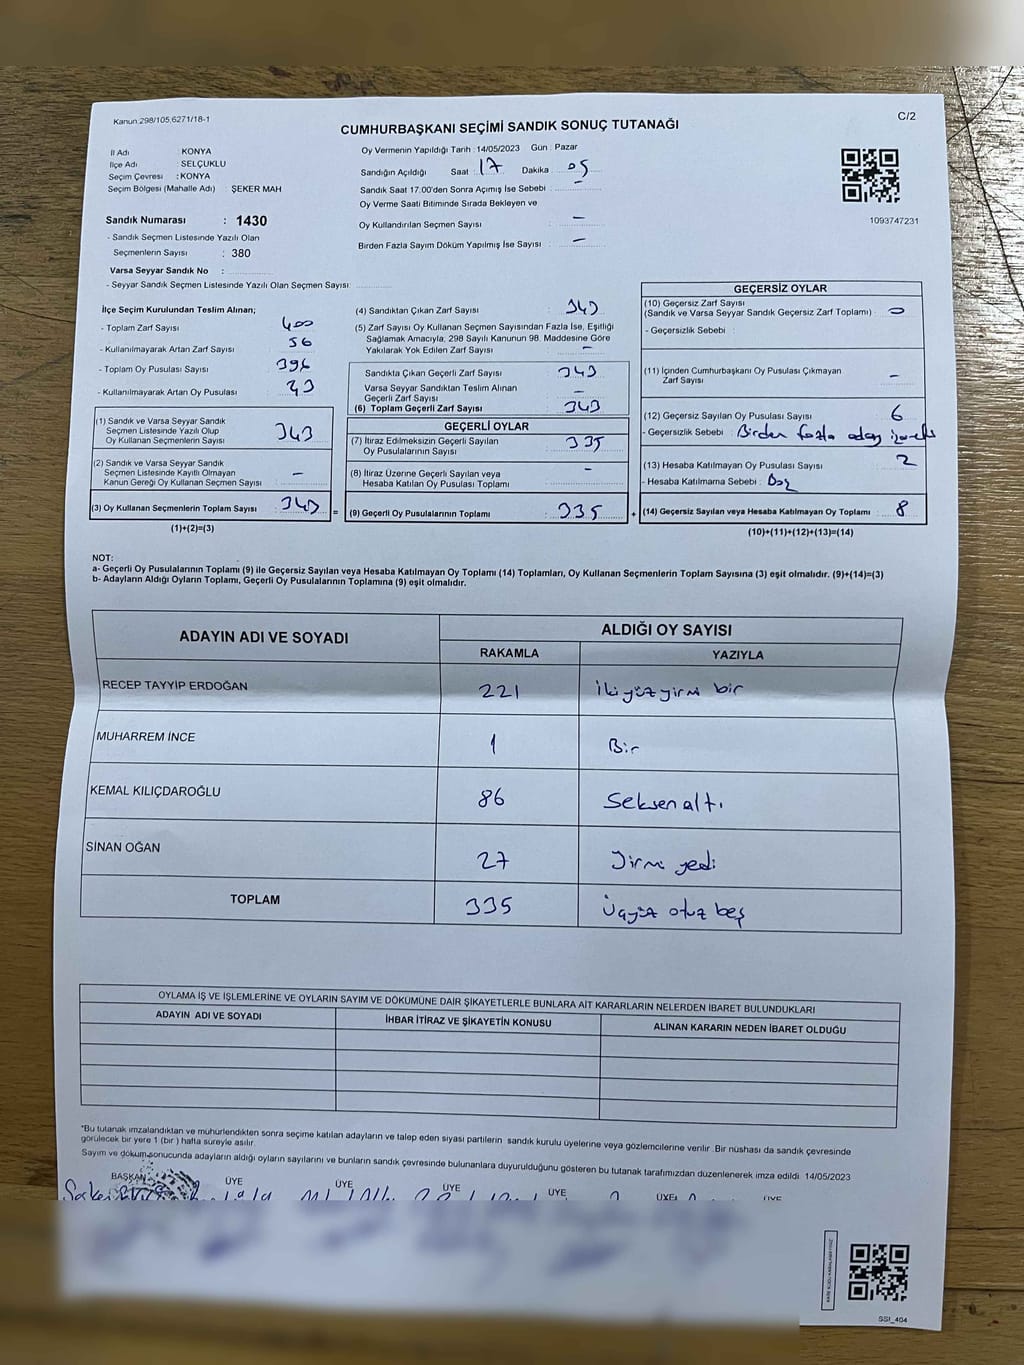 Kanun:298/105,6271/18-1
C/2
CUMHURBAŞKANI SEÇİMİ SANDIK SONUÇ TUTANAĞI
İl Adı : KONYA
İlçe Adı : SELÇUKLU
Seçim Çevresi : KONYA
Seçim Bölgesi (Mahalle Adı) : ŞEKER MAH
Sandık Numarası : 1430
- Sandık Seçmen Listesinde Yazılı Olan
Seçmenlerin Sayısı : 380
Varsa Seyyar Sandık No :
- Seyyar Sandık Seçmen Listesinde Yazılı Olan Seçmen Sayısı:
Oy Vermenin Yapıldığı Tarih : 14/05/2023 Gün : Pazar
Sandığın Açıldığı Saat : 17 Dakika : 05
Sandık Saat 17.00'den Sonra Açımış İse Sebebi : -
Oy Verme Saati Bitiminde Sırada Bekleyen ve
Oy Kullandırılan Seçmen Sayısı : -
Birden Fazla Sayım Döküm Yapılmış İse Sayısı : -
1093747231
İlçe Seçim Kurulundan Teslim Alınan;
- Toplam Zarf Sayısı : 400
- Kullanılmayarak Artan Zarf Sayısı : 56
- Toplam Oy Pusulası Sayısı : 396
- Kullanılmayarak Artan Oy Pusulası :
(1) Sandık ve Varsa Seyyar Sandık
Seçmen Listesinde Yazılı Olup
Oy Kullanan Seçmenlerin Sayısı : 343
(2) Sandık ve Varsa Seyyar Sandık
Seçmen Listesinde Kayıtlı Olmayan
Kanun Gereği Oy Kullanan Seçmen Sayısı : -
(3) Oy Kullanan Seçmenlerin Toplam Sayısı : 343
(1)+(2)=(3)
(4) Sandıktan Çıkan Zarf Sayısı : 343
(5) Zarf Sayısı Oy Kullanan Seçmen Sayısından Fazla İse, Eşitliği
Sağlamak Amacıyla, 298 Sayılı Kanunun 98. Maddesine Göre
Yakılarak Yok Edilen Zarf Sayısı : -
Sandıkta Çıkan Geçerli Zarf Sayısı : 343
Varsa Seyyar Sandıktan Teslim Alınan
Geçerli Zarf Sayısı : -
(6) Toplam Geçerli Zarf Sayısı : 343
GEÇERLİ OYLAR
(7) İtiraz Edilmeksizin Geçerli Sayılan
Oy Pusulalarının Sayısı : 335
(8) İtiraz Üzerine Geçerli Sayılan veya
Hesaba Katılan Oy Pusulası Toplamı : -
= (9) Geçerli Oy Pusulalarının Toplamı : 335
GEÇERSİZ OYLAR
(10) Geçersiz Zarf Sayısı
(Sandık ve Varsa Seyyar Sandık Geçersiz Zarf Toplamı) : 0
- Geçersizlik Sebebi :
(11) İçinden Cumhurbaşkanı Oy Pusulası Çıkmayan
Zarf Sayısı : -
(12) Geçersiz Sayılan Oy Pusulası Sayısı : 6
- Geçersizlik Sebebi : Birden fazla aday
(13) Hesaba Katılmayan Oy Pusulası Sayısı : 2
- Hesaba Katılmama Sebebi : Boş
+ (14) Geçersiz Sayılan veya Hesaba Katılmayan Oy Toplamı : 8
(10)+(11)+(12)+(13)=(14)
NOT:
a- Geçerli Oy Pusulalarının Toplamı (9) ile Geçersiz Sayılan veya Hesaba Katılmayan Oy Toplamı (14) Toplamları, Oy Kullanan Seçmenlerin Toplam Sayısına (3) eşit olmalıdır. (9)+(14)=(3)
b- Adayların Aldığı Oyların Toplamı, Geçerli Oy Pusulalarının Toplamına (9) eşit olmalıdır.
ADAYIN ADI VE SOYADI
ALDIĞI OY SAYISI
RAKAMLA YAZIYLA
RECEP TAYYİP ERDOĞAN 221 İki yüz yirmi bir
MUHARREM İNCE 1 Bir
KEMAL KILIÇDAROĞLU 86 Seksen altı
SİNAN OĞAN 27 Yirmi yedi
TOPLAM 335 Üçyüz otuz beş
OYLAMA İŞ VE İŞLEMLERİNE VE OYLARIN SAYIM VE DÖKÜMÜNE DAİR ŞİKAYETLERLE BUNLARA AİT KARARLARIN NELERDEN İBARET BULUNDUKLARI
ADAYIN ADI VE SOYADI İHBAR İTİRAZ VE ŞİKAYETİN KONUSU ALINAN KARARIN NEDEN İBARET OLDUĞU
*Bu tutanak imzalandıktan ve mühürlendikten sonra seçime katılan adayların ve talep eden siyasi partilerin sandık kurulu üyelerine veya gözlemcilerine verilir. Bir nüshası da sandık çevresinde
görülecek bir yere 1 (bir ) hafta süreyle asılır.
Sayım ve döküm sonucunda adayların aldığı oyların sayılarını ve bunların sandık çevresinde bulunanlara duyurulduğunu gösteren bu tutanak tarafımızdan düzenlenerek imza edildi. 14/05/2023
BAŞKAN ÜYE ÜYE ÜYE ÜYE ÜYE ÜYE
SSI_404